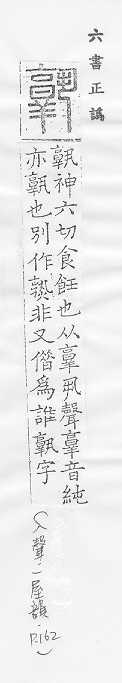 六書正譌
𩰲神六切食飪也从𦎫丮聲𦎫音純
亦𩰲也別作熟非又偺為誰𩰲字
(入聲.一屋韻.P.162)